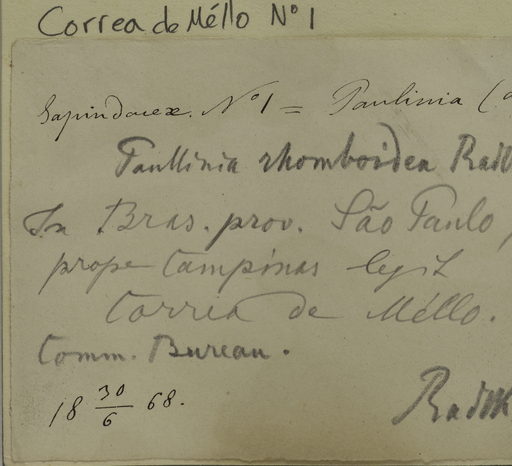 Correa de Méllo Nº 1
Sapindaceæ. Nº 1 = Paulinia (
Paullinia rhomboidea Radl
In Bras. prov. São Paulo,
prope Campinas legit
Correa de Méllo.
Comm. Bureau.
18 30/6 68.
Radlk